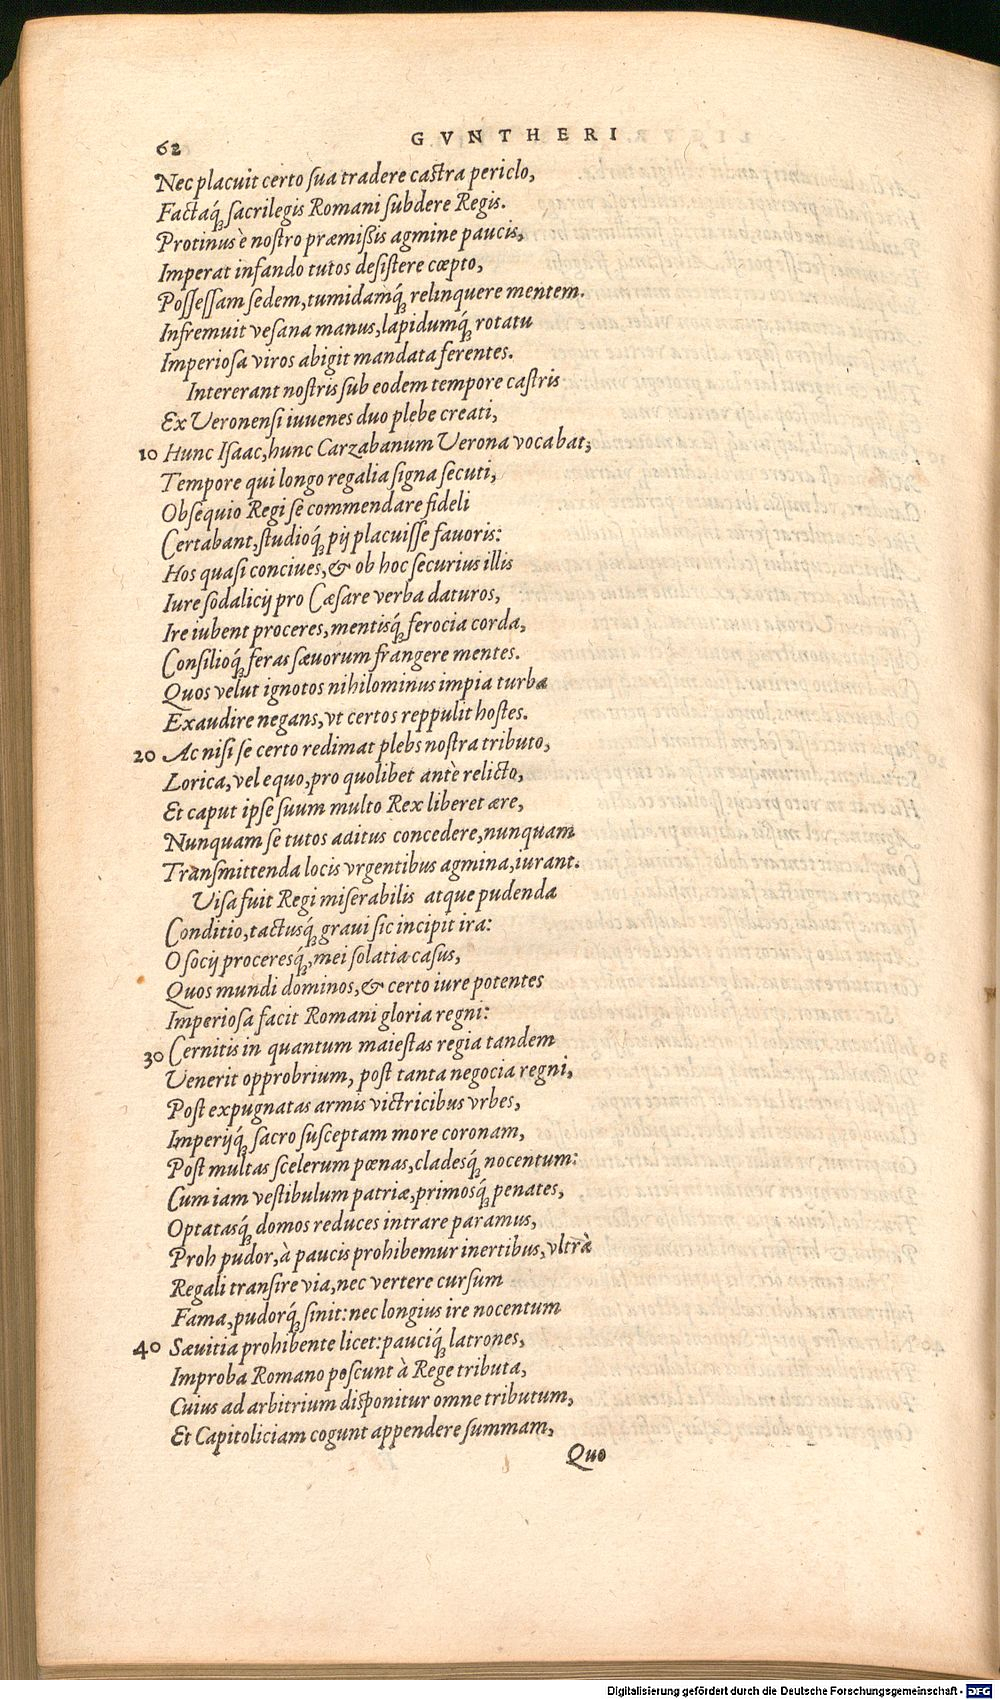 62 GVNTHERI
Nec placuit certo ſua tradere caſtra periclo,
Factaq́ꝫ ſacrilegis Romani ſubdere Regis.
Protinus è noſtro præmiſsis agmine paucis,
Imperat infando tutos deſiſtere cœpto,
Poſſeſſam ſedem, tumidamq́ꝫ relinquere mentem.
Infremuit veſana manus, lapidumq́ꝫ rotatu
Imperioſa viros abigit mandata ferentes.
Intererant noſtris ſub eodem tempore caſtris
Ex Veronenſi iuuenes duo plebe creati,
10 Hunc Iſaac, hunc Carzabanum Verona vocabat,
Tempore qui longo regalia ſigna ſecuti,
Obſequio Regi ſe commendare fideli
Certabant, ſtudioq́ꝫ pij placuiſſe fauoris:
Hos quaſi conciues, & ob hoc ſecurius illis
Iure ſodalicij pro Cæſare verba daturos,
Ire iubent proceres, mentisq́ꝫ ferocia corda,
Conſilioq́ꝫ feras ſæuorum frangere mentes.
Quos velut ignotos nihilominus impia turba
Exaudire negans, vt certos reppulit hoſtes.
20 Ac niſi ſe certo redimat plebs noſtra tributo,
Lorica, vel equo, pro quolibet antè relicto,
Et caput ipſe ſuum multo Rex liberet ære,
Nunquam ſe tutos aditus concedere, nunquam
Tranſmittenda locis vrgentibus agmina, iurant.
Viſa fuit Regi miſerabilis atque pudenda
Conditio, tactusq́ꝫ graui ſic incipit ira:
O ſocij proceresq́ꝫ, mei ſolatia caſus,
Quos mundi dominos, & certo iure potentes
Imperioſa facit Romani gloria regni:
30 Cernitis in quantum maieſtas regia tandem
Venerit opprobrium, poſt tanta negocia regni,
Poſt expugnatas armis victricibus vrbes,
Imperijq́ꝫ ſacro ſuſceptam more coronam,
Poſt multas ſcelerum pœnas, cladesq́ꝫ nocentum:
Cum iam veſtibulum patriæ, primosq́ꝫ penates,
Optatasq́ꝫ domos reduces intrare paramus,
Proh pudor, à paucis prohibemur inertibus, vltrà
Regali tranſire via, nec vertere curſum
Fama, pudorq́ꝫ ſinit: nec longius ire nocentum
40 Sæuitia prohibente licet: pauciq́ꝫ latrones,
Improba Romano poſcunt à Rege tributa,
Cuius ad arbitrium diſponitur omne tributum,
Et Capitoliciam cogunt appendere ſummam,
Quo
Digitalisierung gefördert durch die Deutsche Forschungsgemeinschaft - DFG